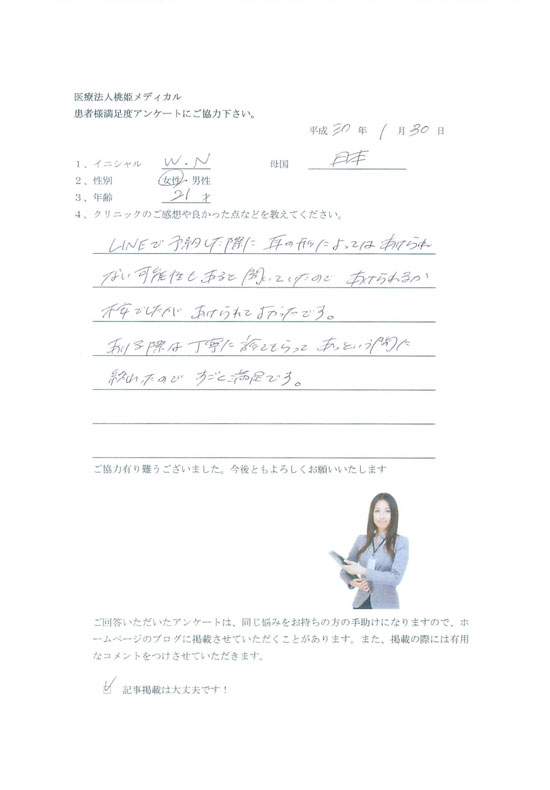 医療法人桃姫メディカル
患者様満足度アンケートにご協力下さい。
平成 30 年 1 月 30 日
1、イニシャル W.N 母国 日本
2、性別 女性・男性
3、年齢 21 才
4、クリニックのご感想や良かった点などを教えてください。
LINEで予約した際に 耳の形によっては あけられ
ない可能性もあると聞いていたので あけられるか
不安でしたが あけられてよかったです。
あける際は丁寧に診てもらって あっという間に
終わったので すごく満足です。
ご協力有り難うございました。今後ともよろしくお願いいたします
ご回答いただいたアンケートは、同じ悩みをお持ちの方の手助けになりますので、ホ
ームページのブログに掲載させていただくことがあります。また、掲載の際には有用
なコメントをつけさせていただきます。
記事掲載は大丈夫です！